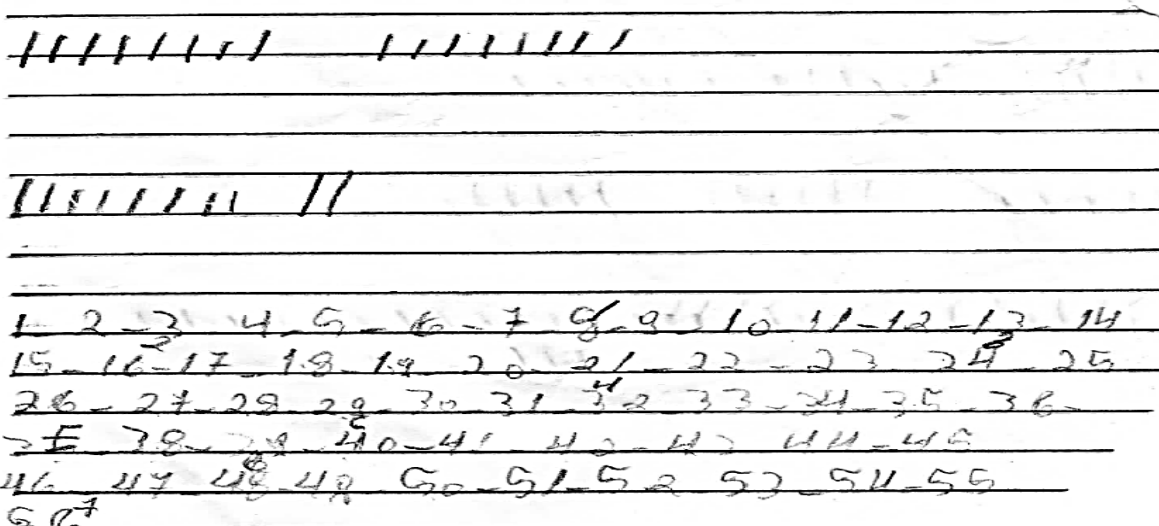 |||||||| ||||||||
|||||||| ||
1 2 - 3 4 - 5 - 6 - 7 8 - 9 - 10 - 11 - 12 - 13 - 14
15 - 16 - 17 - 18 - 19 - 20 - 21 - 22 - 23 24 - 25
26 - 27 - 28 - 29 - 30 - 31 - 32 - 33 - 34 - 35 - 36 -
37 38 - 39 - 40 - 41 42 - 43 44 - 45
46 47 - 48 - 49 50 - 51 - 52 53 - 54 - 55
56